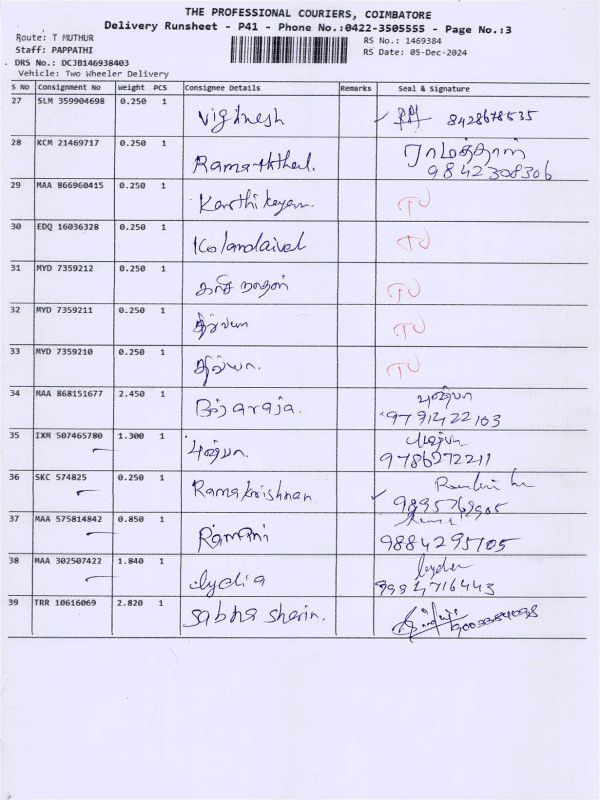 THE PROFESSIONAL COURIERS, COIMBATORE
Delivery Runsheet - P41 - Phone No.:0422-3505555 - Page No.:3
Route: T MUTHUR
RS No.: 1469384
Staff: PAPPATHI
RS Date: 05-Dec-2024
DRS No.: DCJB146938403
Vehicle: Two Wheeler Delivery
S No Consignment No Weight PCS Consignee Details Remarks Seal & Signature
27 SLM 359904698 0.250 1 Vighnesh 8428678535
28 KCM 21469717 0.250 1 Ramaththal. ராமத்தாள்
9842308306
29 MAA 866960415 0.250 1 Karthikeyan.
30 EDQ 16036328 0.250 1 Kolandaivel
31 MYD 7359212 0.250 1 காசி நாதன்
32 MYD 7359211 0.250 1 திவ்யா
33 MYD 7359210 0.250 1 திவ்யா.
34 MAA 868151677 2.450 1 Bojaraja. புஷ்பா
9791422103
35 IXM 507465780 1.300 1 புஷ்பா.
9786272211
36 SKC 574825 0.250 1 Ramakrishnan
9895769905
37 MAA 575814842 0.850 1
9884295105
38 MAA 302507422 1.840 1 Lydia Lydia
9994716443
39 TRR 10616069 2.820 1 Sabha sherin.